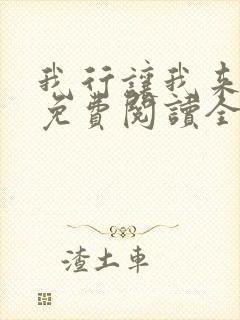 我行讓我來
免費閱讀全
渣土車